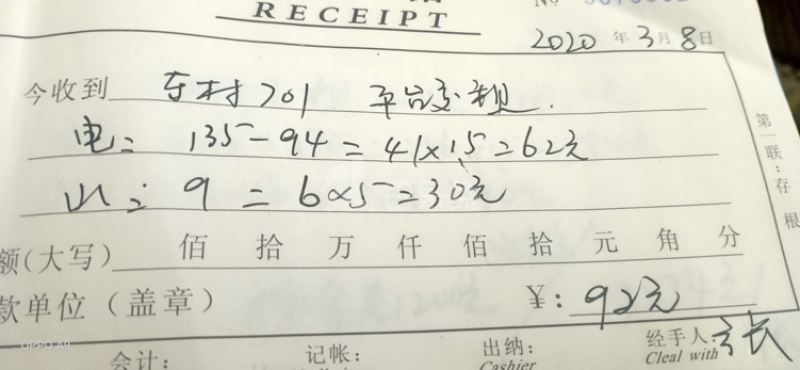 RECEIPT
2020年3月8日
今收到 东村701 平台交租
电: 135-94=41×1.5=62元
水: 9=6×5=30元
额(大写) 佰 拾 万 仟 佰 拾 元 角 分
款单位(盖章) ¥: 92元
会计: 记帐: 出纳: 经手人:
Cashier Cleal with
第一联:存根
OPPO A9